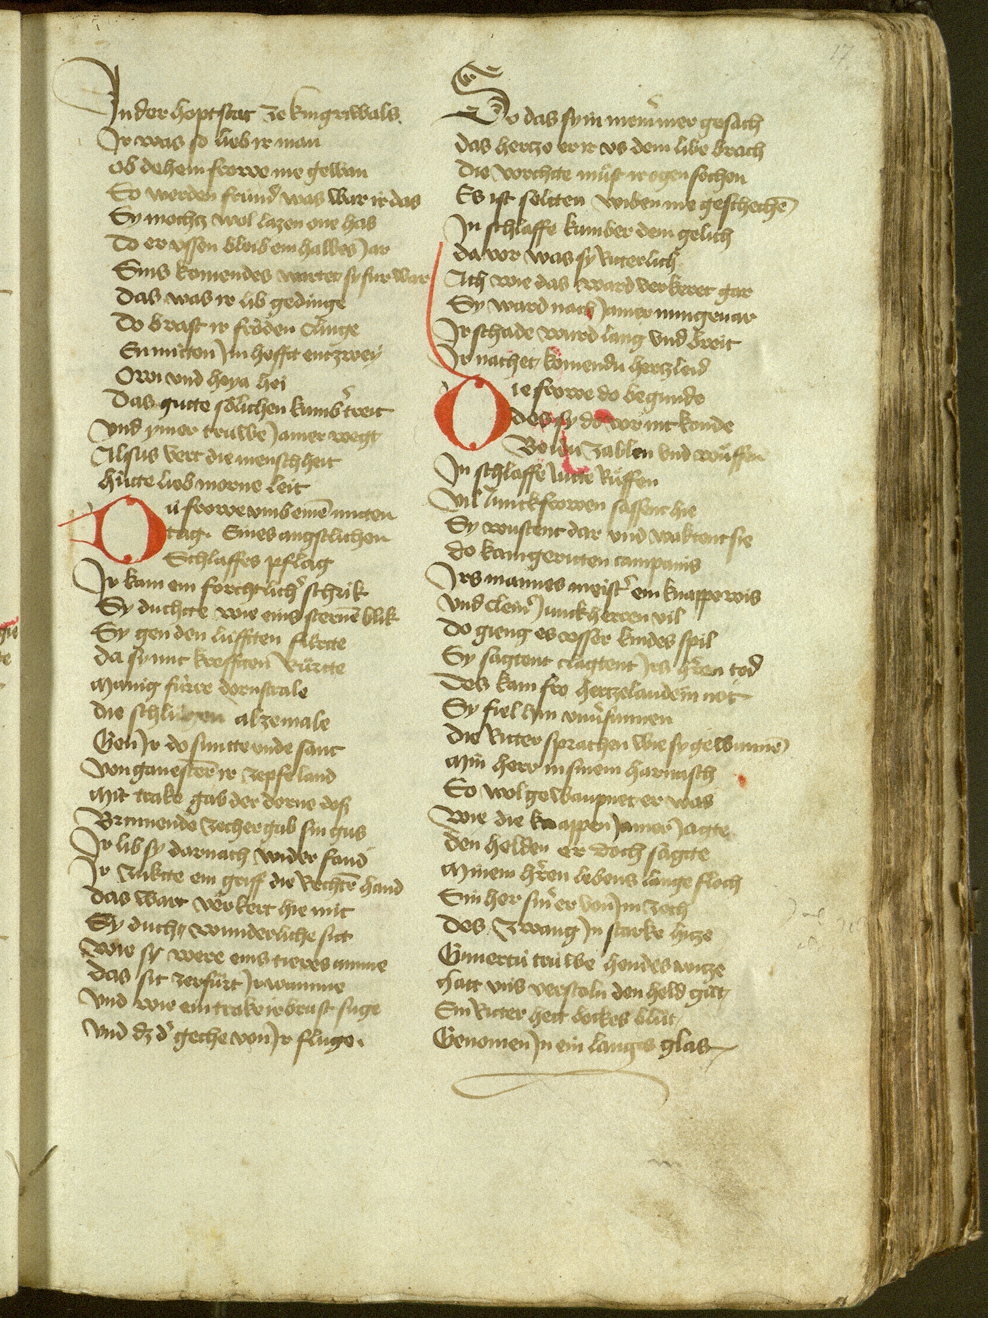 17
In der hoptstat ze kingrwals
Ir was so lieb ir man
Ob dehein frowe nie gewan
So werden frund was war ir das
Sy mochtz wol lazen one has
Do er vssen bleib ein halbes Jar
Sins komendes wartet sy fur war
Das was ir lib gedinge
Do brast ir fröden clinge
En mitten Jm hefft entzwey
Owi und heya hei
Das gutte sölichen kumber treit
Und ymer truwe Jamer regt
Alsus vert die menschheit
Hütte lieb morne leit
Dü frowe vmb einē mitten
tag. Eines angstlichen
Schlaffes pflag
Ir kam ein forchtlichs schrik
Sy duchte wie eins sternē blik
Sy gen den lüfften fürte
Da sy mit krefften rürte
Manig fürre dornstrale
Die schlugen alzemale
Gen Jr do sunte vnde sanc
Von ganestern ir zepfe land
Mit krake gab der dorne dos
Brinnende zecher gab sin gus
Ir lib sy darnach wider fand
Ir zukte ein griff die rechtē hand
Das wart verkert hie mit
Sy ducht wunderliche sit
Wie sy were eins tieres amme
Das sit zerfürt Jr wamme
Und wie ein trake ir brust suge
Und dz dˢ geche von Jr fluge.
So das sy in nemmer gesach
Das hertze er ir vs dem libe brach
Die vorchte müst ir ogen sechen
Es ist seltten wiben me geschechē
In schlaffe kumber dem gelich
Da vor was sy ritterlich
Ach wie das ward verkeret gar
Sy ward nach Jamer nungevar
Ir schade ward lang und breit
Ir nachet komendu hertzleid
Die frowe do begunde
Des sy da vor nit konde
Beidu zablen und wüffen
In schlaffe lutte rüffen
Vil Junckfrowen sassent hie
Sy rustent dar und waktent sie
Do kam geritten tampanis
Irs mannes meistˢ ein knappe wis
Und cleinˢ Junckherren vil
Do gieng es vsser kindes spil
Sy sagtent clagtent Jrs hˢren tod
Des kam fro hertzelande in not
Sy fiel hin vnuˢsunnen
Die ritter sprachen wie sy gewunnē
Min herr in sinem harnasch
So wol gewaupnet er was
Wie die knappen Jamer Jagte
Den helden er doch sagte
Minem hˢren lebens lange floch
Sin her sinˢ er von Jm zoch
Des zwang Jn starke hitze
Gunertu truwe hendes witze
Hatt vns verstoln den held gut
Ein ritter hett bockes blüt
Genomen Jn ein langes glas